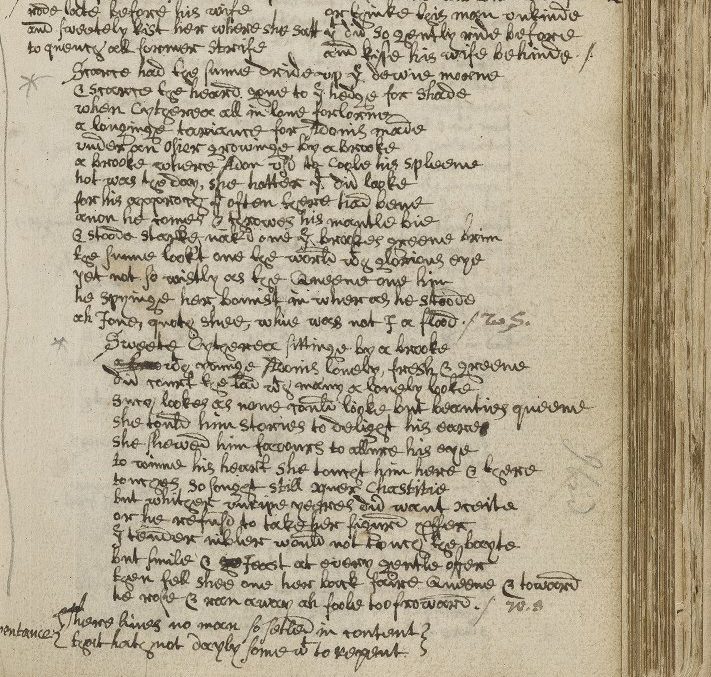 rode backe before his wife
and sweetely kist her where she satt
to quench all former strife
or thinke this man unkinde
yt did so gently ride before
and kisse his wife behinde ./
Scarce had the sunne dride up ye dewie morne
& scarce the heard gone to ye hedge for shade
when Cytherea all in love forlorne
a longinge tariance for Adonis made
under an Osier growinge by a brooke
a brooke where Adon usd to coole his spleene
hot was the day, she hotter yt did looke
for his approch yt often there had bene
anon he comes & throwes his mantle bie
& stoode starke naked one ye brookes greene brim
the sunne lookt one the world wth glorious eye
yet not so wistly as the Queene one him
he spyinge her bounst in wheras he stoode
ah Jove, quoth shee, whie was not I a flood ./ W.S.
Sweete Cytherea sittinge by a brooke
wth younge Adonis lovely, fresh & greene
did court the lad wth many a lovely looke
such lookes as none could looke but beauties queene
She tould him stories to delight his eares
She shewed him favours to allure his eye
to winne his heart she toucht him here & there
touches so sought still conquer Chastitie
but whither unripe yeares did want conceite
or he refusd to take her figurd proffer
ye tender nibler would not touch the bayte
but smile & jeast at every gentle offer
then fell shee one her back faire Queene & toward
he rose & ran away ah foole too froward ./ W.S
pentance
There lives no man so setled in content
that hath not dayly somewt to repent